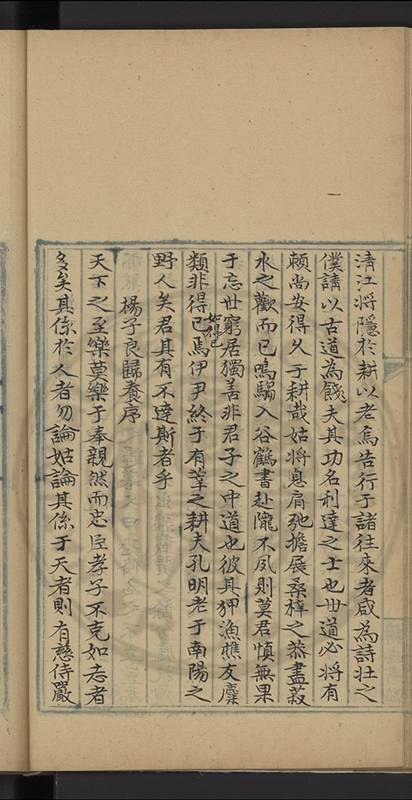 清江將隱於耕以老焉告行于諸往來者咸為詩壮之
僕請以古道為餞夫其功名利達之士也世道必將有
頼尚安得久于耕哉姑將息肩弛擔展桑梓之恭盡菽
水之歡而已鳴騶入谷鶴書赴隴不夙則莫君慎無果
于忘世窮居獨善非君子之中道也彼其狎漁樵友麋
類非得已如得已焉伊尹終于有莘之耕夫孔明老于南陽之
野人矣君其有不達斯者乎
楊子良歸養序
天下之至樂莫樂于奉親然而忠臣孝子不克如志者
多矣其係於人者勿論姑論其係于天者則有慈侍嚴